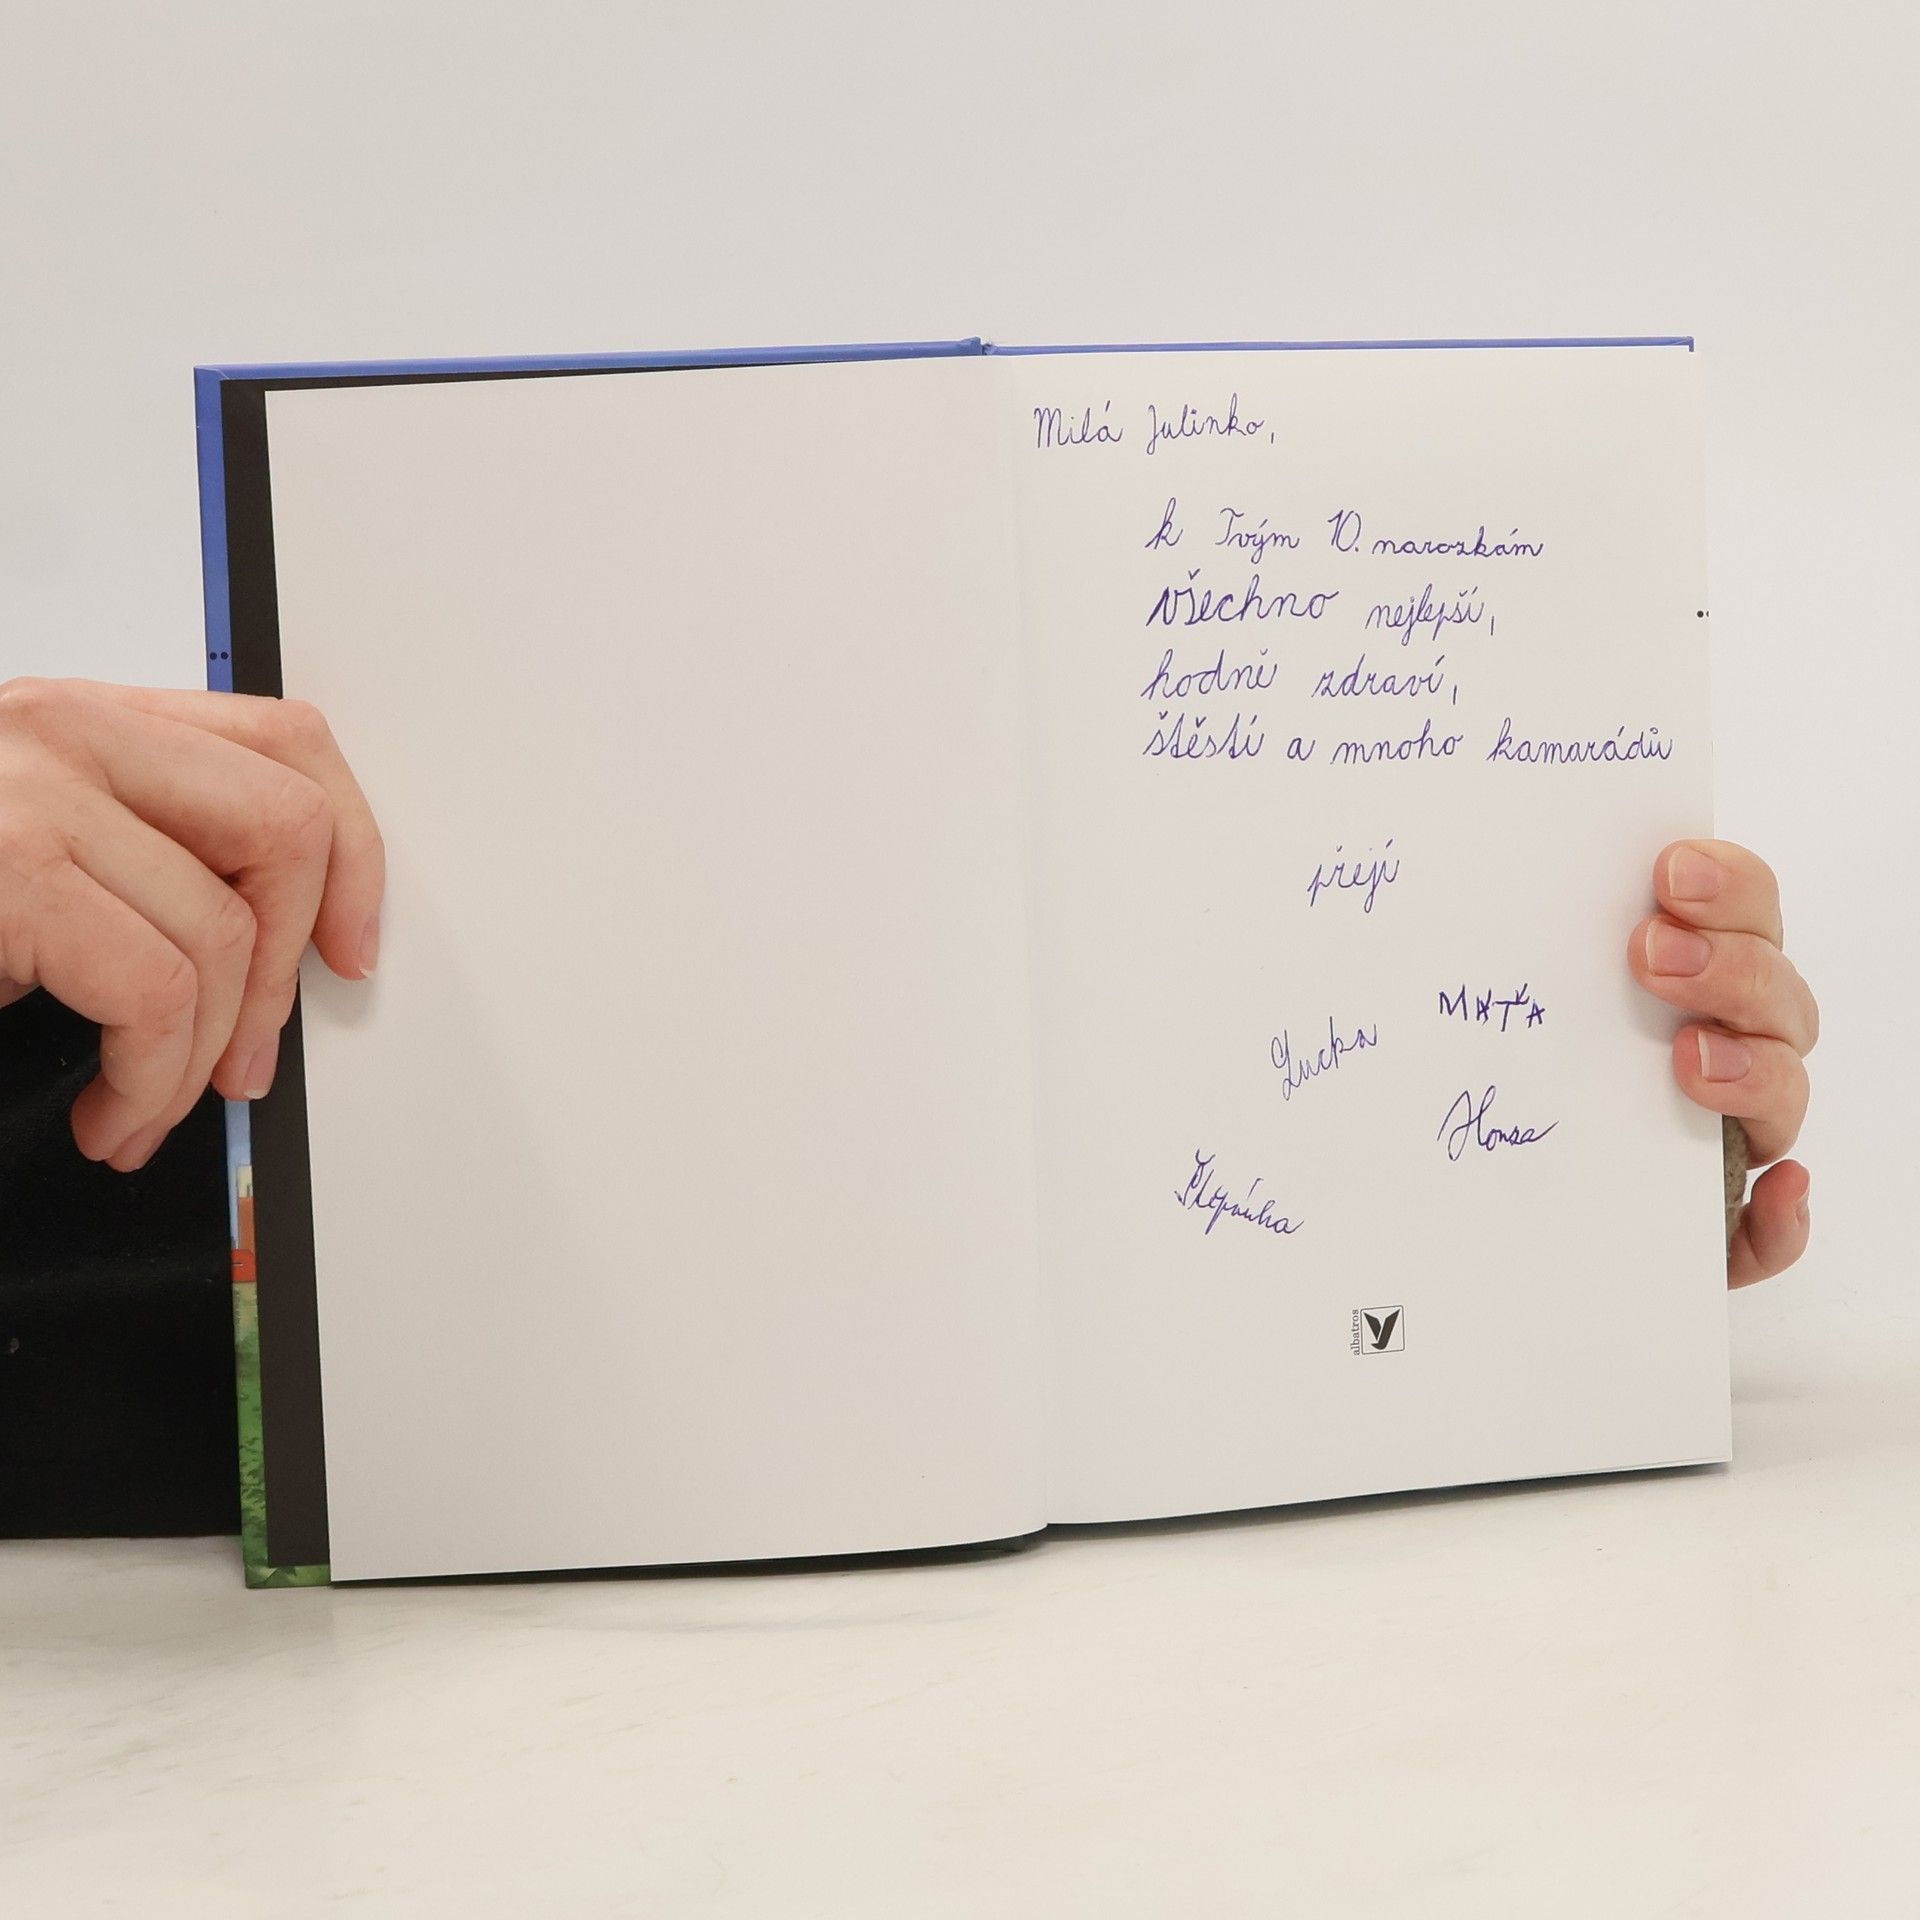 Milá Julinko,
k Tvým 10. narozkám
všechno nejlepší,
hodně zdraví,
štěstí a mnoho kamarádů
přejí
MATKA
Lucka
Honza
Štěpánka
albatros